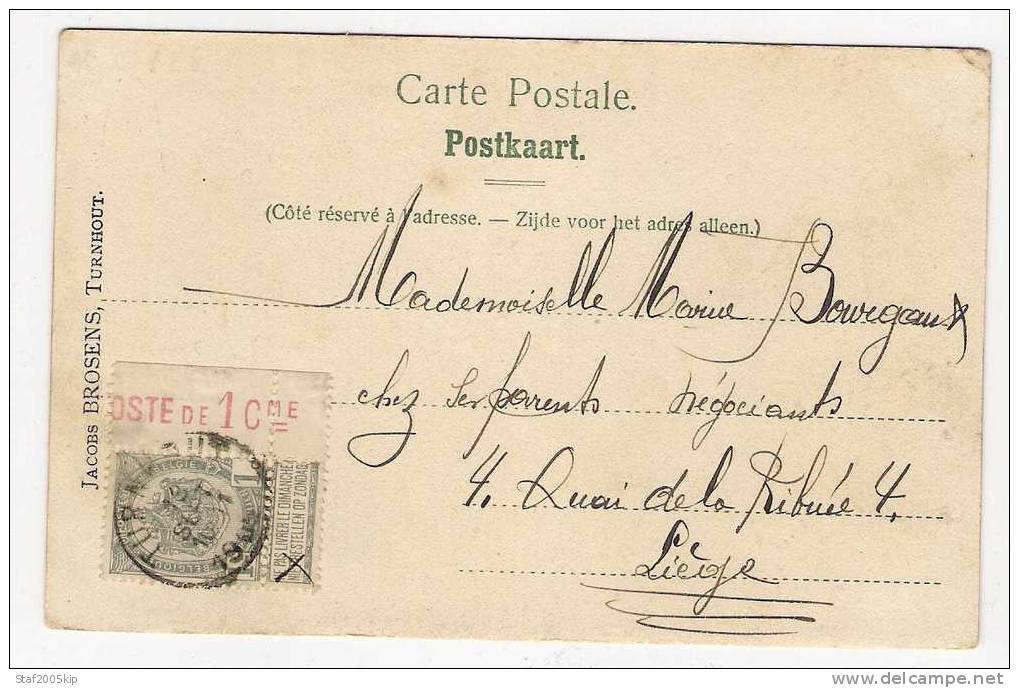 Carte Postale.
Postkaart.
(Côté réservé à l'adresse. — Zijde voor het adres alleen.)
Mademoiselle Marie Bourgaux
chez ses parents négociants
4. Quai de la Ribuée 4.
Liège
JACOBS BROSENS, TURNHOUT.
OSTE DE 1 CME
BELGIE
1
BELGIQUE
NE PAS LIVRER LE DIMANCHE
NIET BESTELLEN OP ZONDAG
Staf2005kip
delcampe.net